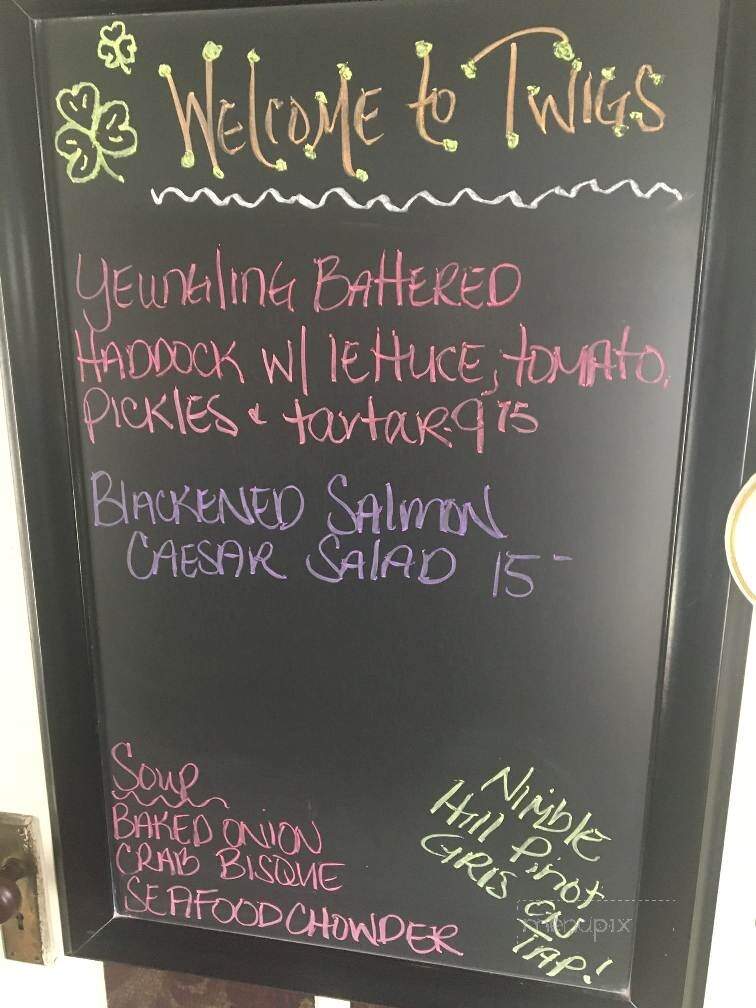 WELCOME to TWIGS
YEUNGlING BAttERED
HADDOCK W/ lEttUCE, tOMAtO,
PICKlES & tartar. 9 75
BlACKENED SAlmON
CAESAR SAlAD 15-
Soup
BAKED ONION
CRAB BISQUE
SEAFOOD CHOWDER
NIMBlE
Hill Pinot
GRIS ON
TAP!
menupix